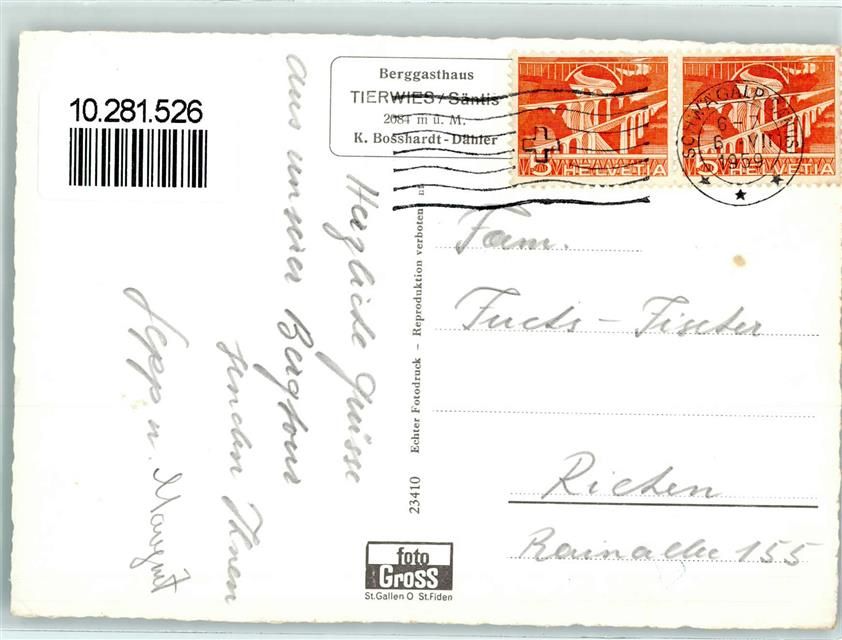 10.281.526
Berggasthaus
TIERWIES/Säntis
2084 m ü. M.
K. Bosshardt-Dähler
5 HELVETIA
5 HELVETIA
SCHWÄGALP
6. VII
1959
Herzliche Grüsse
aus unserer Bergtour
senden Ihnen
Sepp u. Margrit
Echter Fotodruck - Reproduktion verboten
23410
Fam.
Fuchs-Fischer
Riehen
Rainallee 155
foto
Gross
St.Gallen O St.Fiden